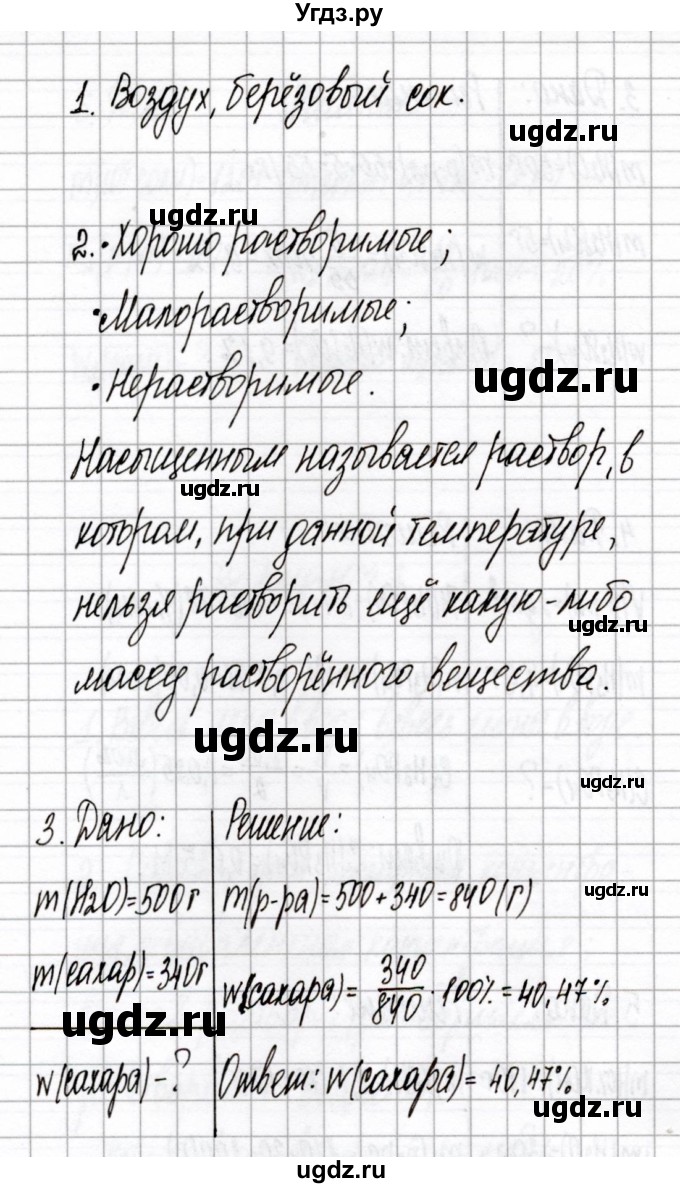 Угдз.ру
1. Воздух, берёзовый сок.
ugdz.ru
ugdz.ru
2. • Хорошо растворимые;
• Малорастворимые;
ugdz.ru
• Нерастворимые.
Насыщенным называется раствор, в
ugdz.ru
котором, при данной температуре,
нельзя растворить ещё какую-либо
ugdz.ru
массу растворённого вещества.
ugdz.ru
ugdz.ru
3. Дано:
m(H2O)=500г
m(сахар)=340г
w(сахара) - ?
Решение:
m(р-ра)=500+340=840(г)
ugdz.ru
w(сахара)= 340/840 · 100% = 40,47%
ugdz.ru
Ответ: w(сахара)= 40,47%
ugdz.ru
ugdz.ru